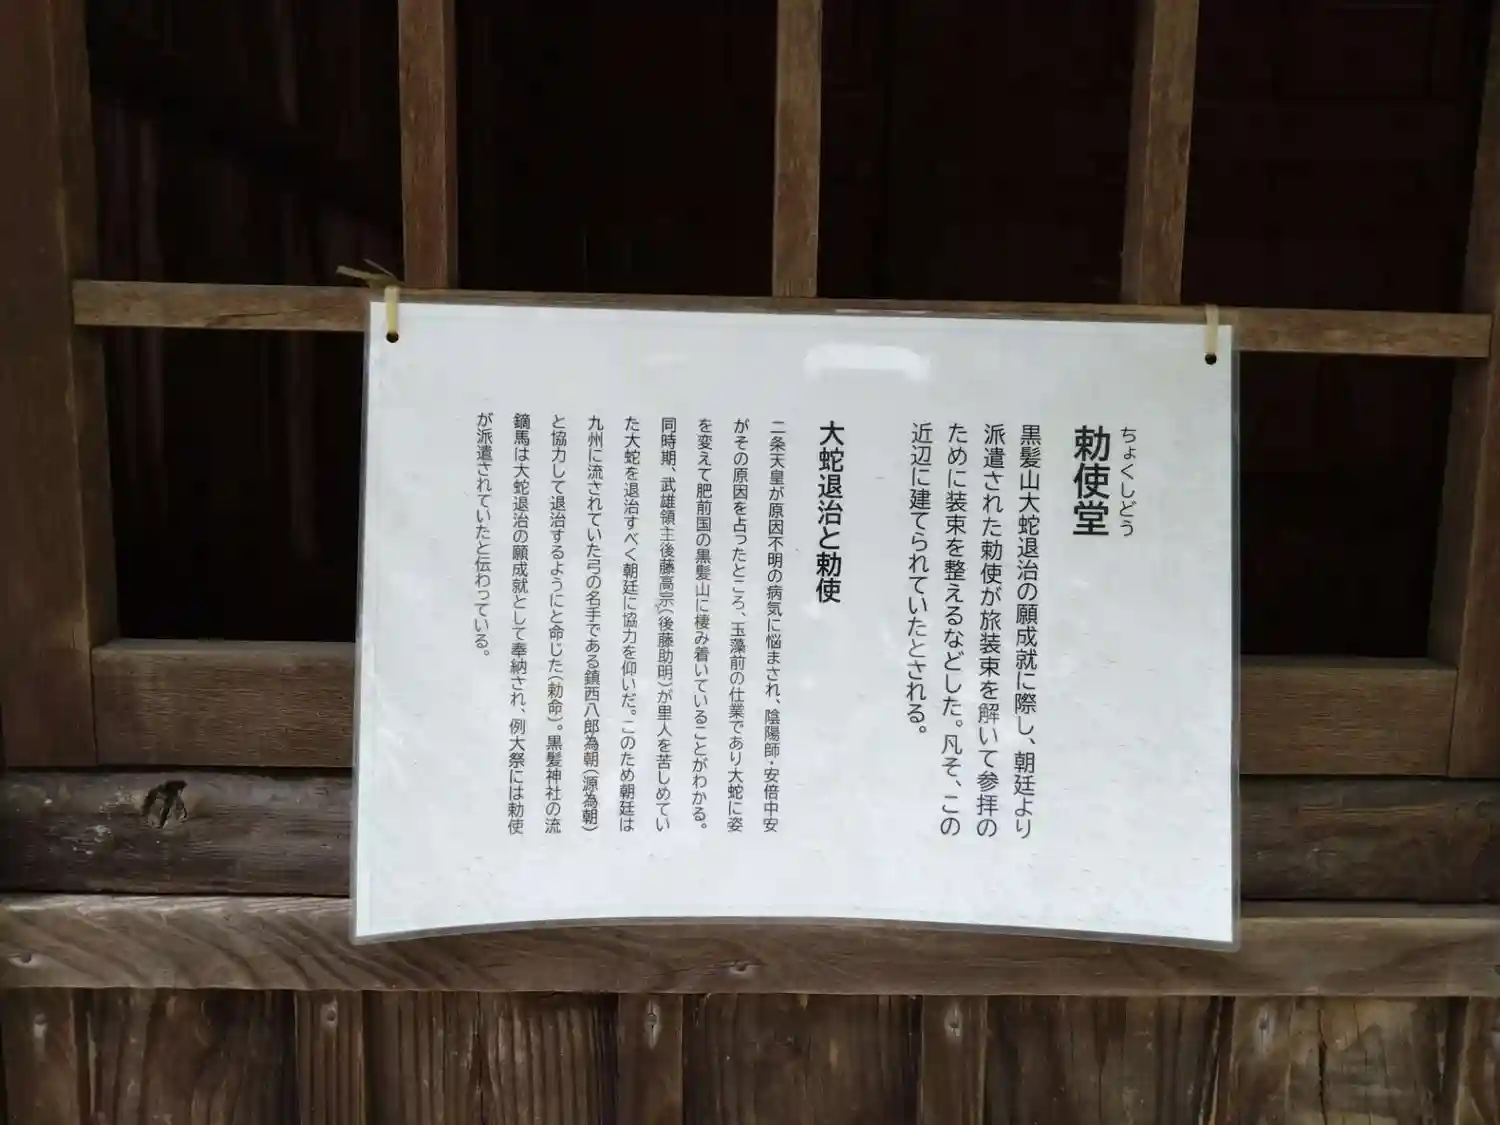 ちょくしどう
勅使堂
黒髪山大蛇退治の願成就に際し、朝廷より
派遣された勅使が旅装束を解いて参拝の
ために装束を整えるなどした。凡そ、この
近辺に建てられていたとされる。
大蛇退治と勅使
二条天皇が原因不明の病気に悩まされ、陰陽師・安倍中安
がその原因を占ったところ、玉藻前の仕業であり大蛇に姿
を変えて肥前国の黒髪山に棲み着いていることがわかる。
同時期、武雄領主後藤高宗（後藤助明）が里人を苦しめてい
た大蛇を退治すべく朝廷に協力を仰いだ。このため朝廷は
九州に流されていた弓の名手である鎮西八郎為朝（源為朝）
と協力して退治するようにと命じた（勅命）。黒髪神社の流
鏑馬は大蛇退治の願成就として奉納され、例大祭には勅使
が派遣されていたと伝わっている。